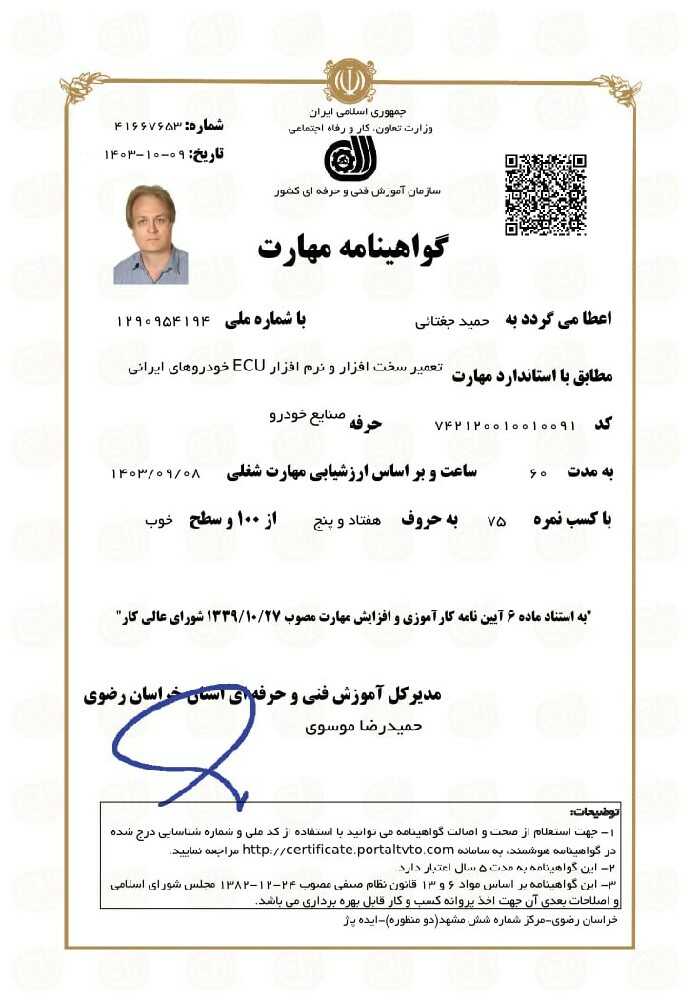 جمهوری اسلامی ایران
وزارت تعاون، کار و رفاه اجتماعی
شماره: ۴۱۶۶۷۶۵۳
تاریخ: ۱۴۰۳-۱۰-۰۹
سازمان آموزش فنی و حرفه ای کشور
گواهینامه مهارت
اعطا می گردد به حمید جغتائی با شماره ملی ۱۲۹۰۹۵۴۱۹۴
مطابق با استاندارد مهارت تعمیر سخت افزار و نرم افزار ECU خودروهای ایرانی
کد ۷۴۲۱۲۰۰۱۰۰۱۰۰۹۱ حرفه صنایع خودرو
به مدت ۶۰ ساعت و بر اساس ارزشیابی مهارت شغلی ۱۴۰۳/۰۹/۰۸
با کسب نمره ۷۵ به حروف هفتاد و پنج از ۱۰۰ و سطح خوب
"به استناد ماده ۶ آیین نامه کارآموزی و افزایش مهارت مصوب ۱۳۳۹/۱۰/۲۷ شورای عالی کار"
مدیرکل آموزش فنی و حرفه ای استان خراسان رضوی
حمیدرضا موسوی
توضیحات:
۱- جهت استعلام از صحت و اصالت گواهینامه می توانید با استفاده از کد ملی و شماره شناسایی درج شده
در گواهینامه هوشمند، به سامانه http://certificate.portaltvto.com مراجعه نمایید.
۲- این گواهینامه به مدت ۵ سال اعتبار دارد.
۳- این گواهینامه بر اساس مواد ۶ و ۱۳ قانون نظام صنفی مصوب ۲۴-۱۲-۱۳۸۲ مجلس شورای اسلامی
و اصلاحات بعدی آن جهت اخذ پروانه کسب و کار قابل بهره برداری می باشد.
خراسان رضوی-مرکز شماره شش مشهد(دو منظوره)-ایده پژ